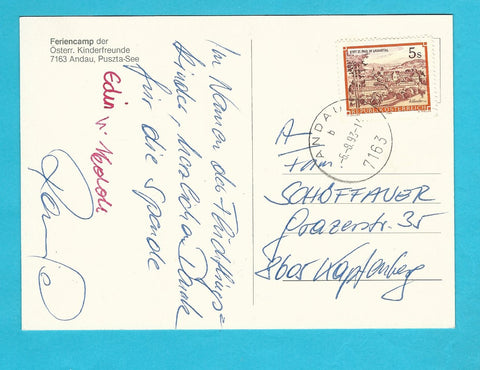 Feriencamp der
Österr. Kinderfreunde
7163 Andau, Puszta-See
Im Namen der Flüchtlings=
kinder, herzlichen Dank
für die Spende
Edin
STIFT ST. PAUL IM LAVANTTAL
5 S
REPUBLIK ÖSTERREICH
ANDAU
b
-6.-8.93-1
7163
A
Fam.
SCHÖFFAUER
Grazerstr. 35
8605 Kapfenberg